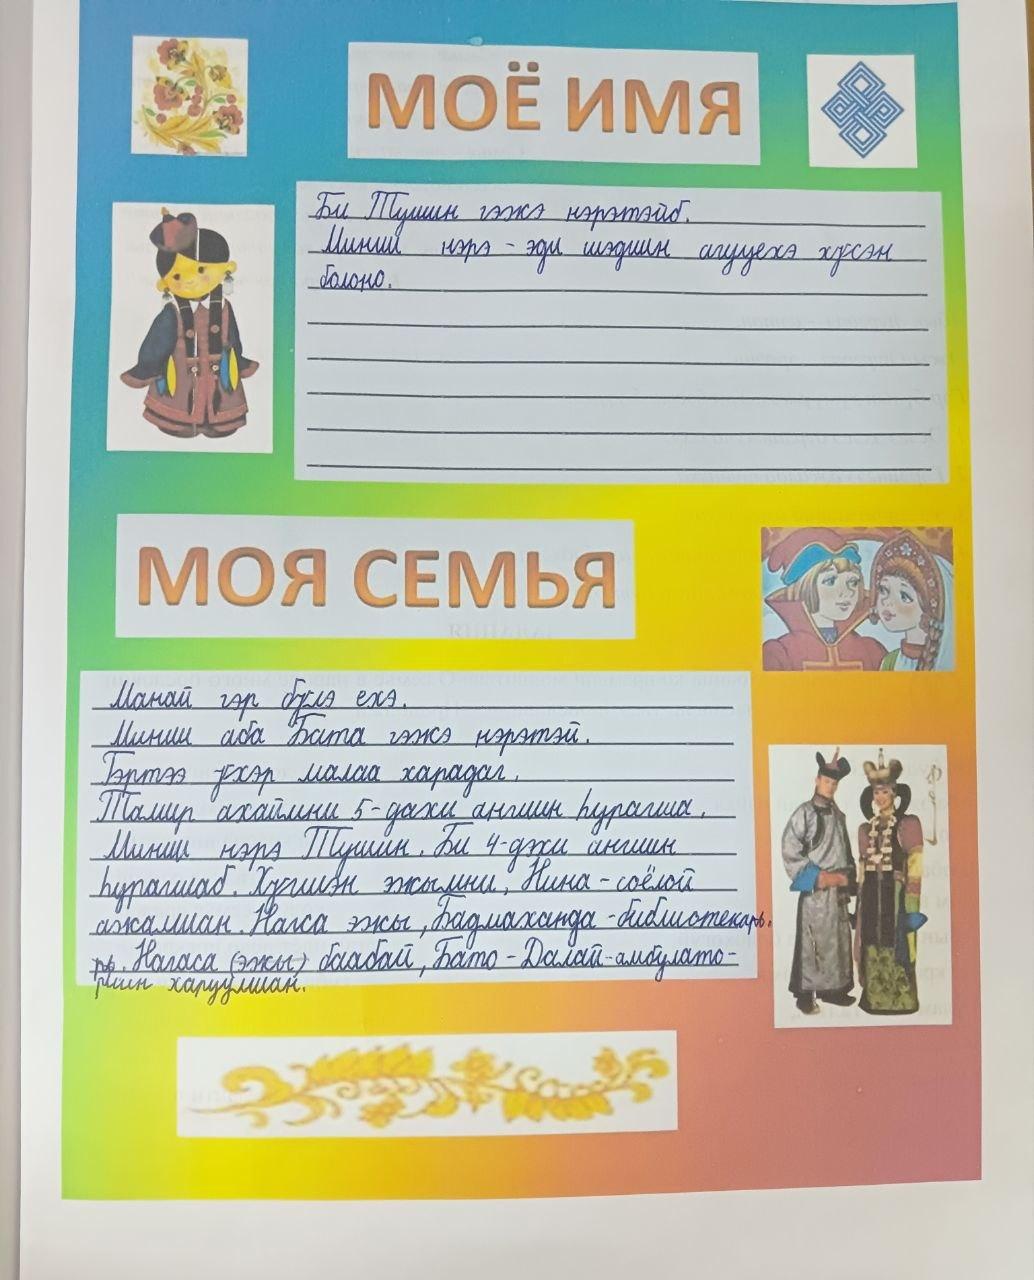 МОЁ ИМЯ
Би Түшин гэжэ нэрэтэйб.
Минии нэрэ - эди шэдшин агууехэ хүсэн
болоно.
МОЯ СЕМЬЯ
Манай гэр бүлэ ехэ.
Минии аба Бата гэжэ нэрэтэй.
Гэртээ үхэр малаа харадаг.
Тамир ахаймни 5-дахи ангиин һурагша.
Минии нэрэ Түшин. Би 4-дэхи ангиин
һурагшаб. Хүгшэн эжымни, Нина-соёлой
ажалшан. Нагаса эжы, Бадмаханда-библиотекарь.
рь. Нагаса (эжы) баабай, Бато-Далай-амбулато-
риин харуулшан.